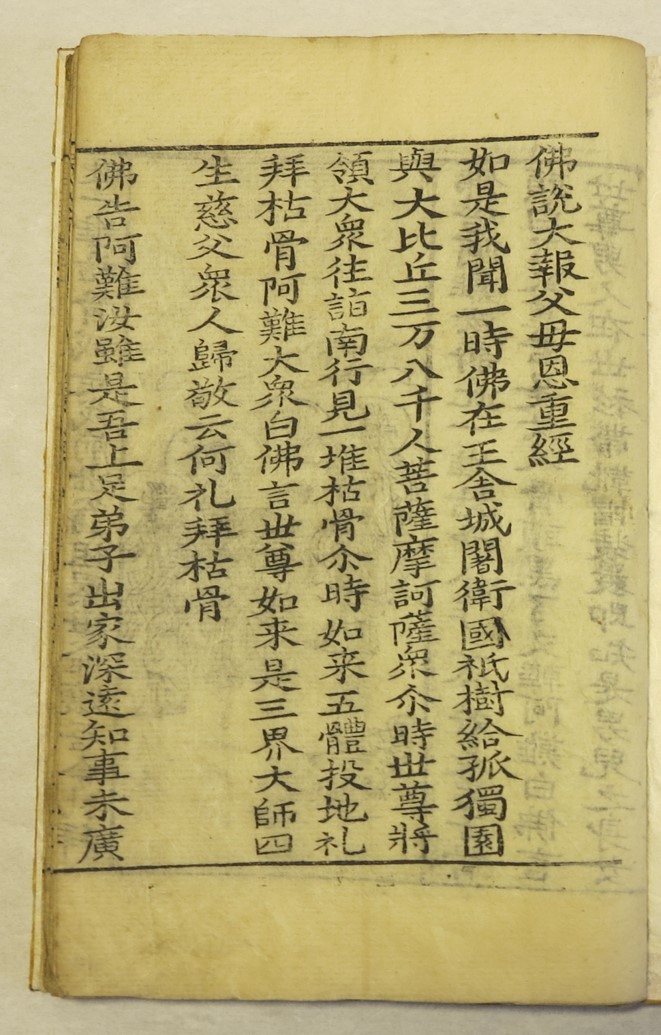 佛說大報父母恩重經
如是我聞一時佛在王舍城闍衛國祇樹給孤獨園
與大比丘三万八千人菩薩摩訶薩衆尒時世尊將
領大衆往詣南行見一堆枯骨尒時如来五體投地礼
拜枯骨阿難大衆白佛言世尊如来是三界大師四
生慈父衆人歸敬云何礼拜枯骨
佛告阿難汝雖是吾上足弟子出家深遠知事未廣